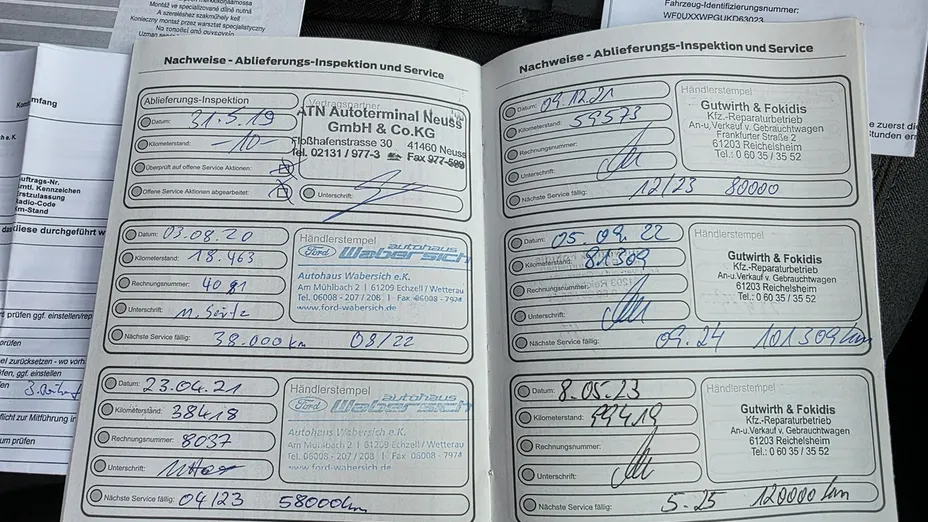 Montage ve specializované dílně nutná
A szereléshez szakműhely kell
Konieczny montaż przez warsztat specjalistyczny
Fahrzeug-Identifizierungsnummer:
WF0UXXWPGUKD63023
zuerst die
Stunden
uftrags-Nr.
mtl. Kennzeichen
rstzulassung
adio-Code
m-Stand
diese durchgeführt
prüfen, ggf. einstellen
prüfen
zurücksetzen - wo
prüfen, ggf. einstellen
flicht zur Mitführung
um prüfen
Nachweise - Ablieferungs-Inspektion und Service
Ablieferungs-Inspektion
Datum: 31.5.19
Kilometerstand: -10-
Überprüft auf offene Service Aktionen:
Offene Service Aktionen abgearbeitet:
Vertragspartner
ATN Autoterminal Neuss
GmbH & Co.KG
Floßhafenstrasse 30 41460 Neuss
Tel. 02131 / 977-3 Fax 977-599
Unterschrift:
Datum: 03.08.20
Kilometerstand: 18.463
Rechnungsnummer: 4091
Unterschrift:
Nächste Service fällig: 38.000 km 08/22
Händlerstempel
Ford autohaus
Wabersich
Autohaus Wabersich e.K.
Am Mühlbach 2 | 61209 Echzell / Wetterau
Tel. 06008 - 207 / 208 | Fax 06008 - 7974
www.ford-wabersich.de
Datum: 23.04.21
Kilometerstand: 38418
Rechnungsnummer: 8037
Unterschrift:
Nächste Service fällig: 04/23 58000km
Händlerstempel
Ford autohaus
Wabersich
Autohaus Wabersich e.K.
Am Mühlbach 2 | 61209 Echzell / Wetterau
Tel. 06008 - 207 / 208 | Fax 06008 - 7974
www.ford-wabersich.de
Nachweise - Ablieferungs-Inspektion und Service
Datum: 09.12.21
Kilometerstand: 59573
Rechnungsnummer:
Unterschrift:
Nächste Service fällig: 12/23 80000
Händlerstempel
Gutwirth & Fokidis
Kfz.-Reparaturbetrieb
An-u,Verkauf v. Gebrauchtwagen
Frankfurter Straße 2
61203 Reichelsheim
Tel.: 0 60 35 / 35 52
Datum: 05.09.22
Kilometerstand: 81309
Rechnungsnummer:
Unterschrift:
Nächste Service fällig: 09.24 101309km
Händlerstempel
Gutwirth & Fokidis
Kfz.-Reparaturbetrieb
An-u,Verkauf v. Gebrauchtwagen
61203 Reichelsheim
Tel.: 0 60 35 / 35 52
Datum: 8.05.23
Kilometerstand: 99419
Rechnungsnummer:
Unterschrift:
Nächste Service fällig: 5.25 120000km
Händlerstempel
Gutwirth & Fokidis
Kfz.-Reparaturbetrieb
An-u.Verkauf v. Gebrauchtwagen
61203 Reichelsheim
Tel.: 0 60 35 / 35 52